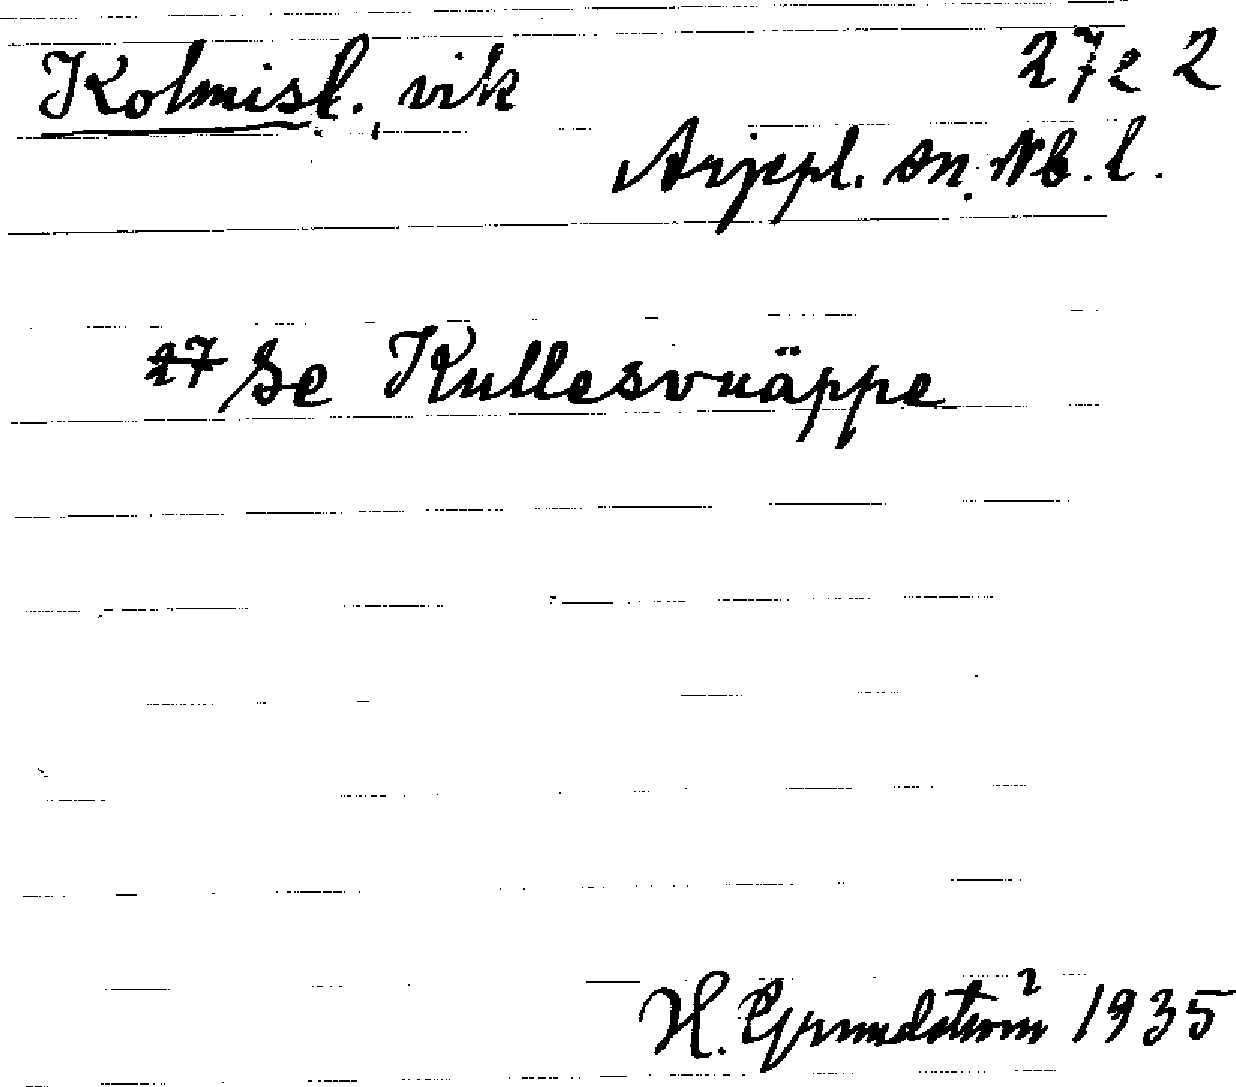 Kolmisl., vik 27e2
Arjepl. sn. Nb. l.
27 Se Kullesvuäppe
H. Grundström 1935